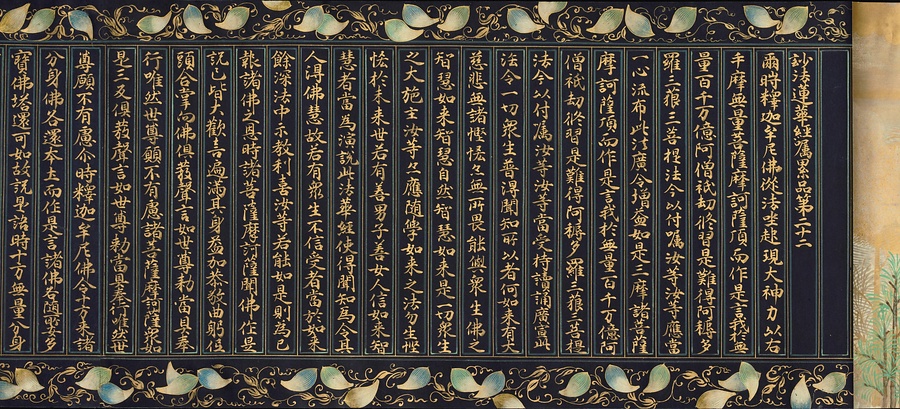 妙法蓮華經属累品第二十二
爾時釋迦牟尼佛從法坐起現大神力以右
手摩無量菩薩摩訶薩頂而作是言我於無
量百千万億阿僧祇劫修習是難得阿耨多
羅三藐三菩提法今以付嘱汝等汝等應當
一心流布此法廣令増益如是三摩諸菩薩
摩訶薩頂而作是言我於無量百千万億阿
僧祇劫修習是難得阿耨多羅三藐三菩提
法今以付属汝等汝等當受持讀誦廣宣此
法令一切衆生普得聞知所以者何如来有大
慈悲無諸慳悋亦無所畏能與衆生佛之
智慧如来智慧自然智慧如来是一切衆生
之大施主汝等亦應随學如来之法勿生慳
悋於未来世若有善男子善女人信如来智
慧者當為演說此法華經使得聞知為令其
人得佛慧故若有衆生不信受者當於如来
餘深法中示教利喜汝等若能如是則為已
報諸佛之恩時諸菩薩摩訶薩聞佛作是
說已皆大歡喜遍滿其身益加恭敬曲躬低
頭合掌向佛俱發聲言如世尊勅當具奉
行唯然世尊願不有慮諸菩薩摩訶薩衆如
是三反俱發聲言如世尊勅當具奉行唯然世
尊願不有慮尒時釋迦牟尼佛令十方来諸
分身佛各還本土而作是言諸佛各隨所安多
寶佛塔還可如故說是語時十方無量分身